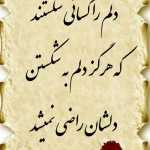 دلم را کسانی شکستند
که هرگز دلم به شکستن
دلشان راضی نمیشد